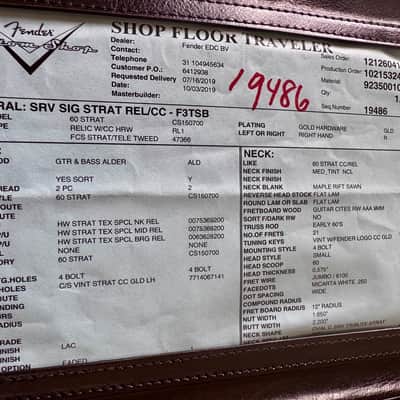 Fender
Custom Shop
SHOP FLOOR TRAVELER
Dealer:
Fender EDC BV
Contact:
Telephone 31 104945634
Customer P.O. 6412938
Requested Delivery 07/16/2019
Date: 10/03/2019
Masterbuilder:
Sales Order: 12126041
Production Order: 10215324
Material: 92350010
Quantity: 1
Seq Number 19486
19486
RAL: SRV SIG STRAT REL/CC - F3TSB
60 STRAT CS150700
RELIC W/CC HRW RL1
FCS STRAT/TELE TWEED 47366
PLATING GOLD HARDWARE GLD
LEFT OR RIGHT RIGHT HAND R
OD GTR & BASS ALDER ALD
YES SORT Y
EAD 2 PC 2
YLE 60 STRAT CS150700
P/U HW STRAT TEX SPCL NK REL 0075369200
P/U HW STRAT TEX SPCL MID REL 0075369200
P/U HW STRAT TEX SPCL BRG REL 0063628200
NONE NONE
ORY 60 STRAT CS150700
G.HOLES 4 BOLT 4 BOLT
HOLES C/S VINT STRAT CC GLD LH 7714067141
HOLES
URE
RADIUS
GRADE
FINISH LAC
FINISH
FADED
NECK:
LIKE 60 STRAT CC/REL
NECK FINISH MED_TINT NCL
NECK FINISH
NECK BLANK MAPLE RIFT SAWN
REVERSE HEAD STOCK FLAT LAM
ROUND LAM OR SLAB FLAT LAM
FRETBOARD WOOD GUITAR CITES RW AAA WMM
SORT F/DARK RW NO
TRUSS ROD EARLY 60'S
NO.OF FRETS 21
TUNING KEYS VINT W/FENDER LOGO CC GLD
MOUNTING STYLE 4 BOLT
HEAD STYLE SMALL
HEAD SCOOP 60
HEAD THICKNESS 0.575"
FRET WIRE JUMBO / 6100
FACEDOTS MICARTA WHITE .250
DOT SPACING WIDE
COMPOUND RADIUS
FRETBOARD RADIUS 12" RADIUS
NUT WIDTH 1.650"
BUTT WIDTH 2.200"
NECK SHAPE